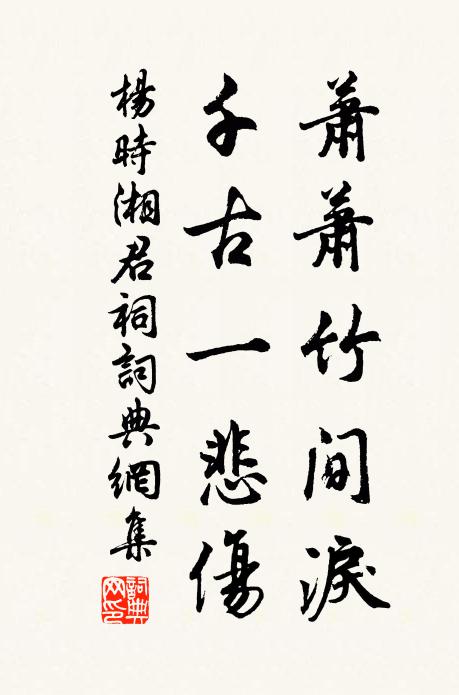 蕭蕭竹間淚
千古一悲傷
楊時湘君祠詞典網集
詞典网印